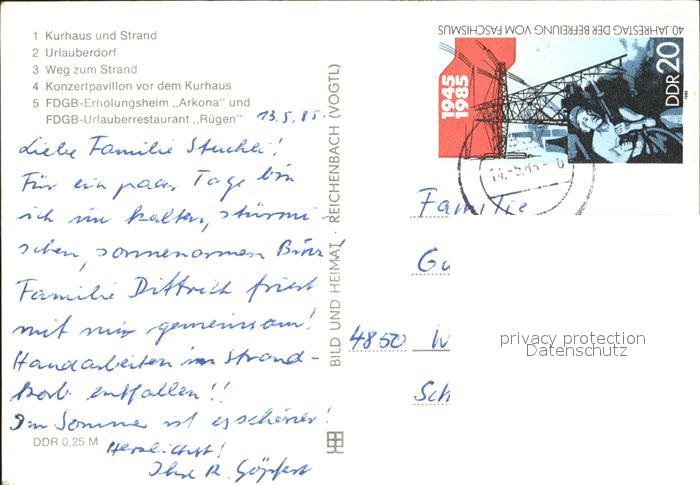 1 Kurhaus und Strand
2 Urlauberdorf
3 Weg zum Strand
4 Konzertpavillon vor dem Kurhaus
5 FDGB-Erholungsheim „Arkona" und
FDGB-Urlauberrestaurant „Rügen"
13.5.85.
Liebe Familie
Für ein paar Tage bin
ich im kalten, stürmi-
schen, sonnenarmen Binz!
Familie Dittrich friert
mit mir gemeinsam!
Handarbeiten im Strand-
korb entfallen!!
Im Sommer ist es schöner!
Herzlichst!
Ihre R. Göpfert
DDR 0,25 M
BILD UND HEIMAT · REICHENBACH (VOGTL)
40. JAHRESTAG DER BEFREIUNG VOM FASCHISMUS
1945
1985
DDR 20
Familie
Gu
4850 W
Sch
privacy protection
Datenschutz